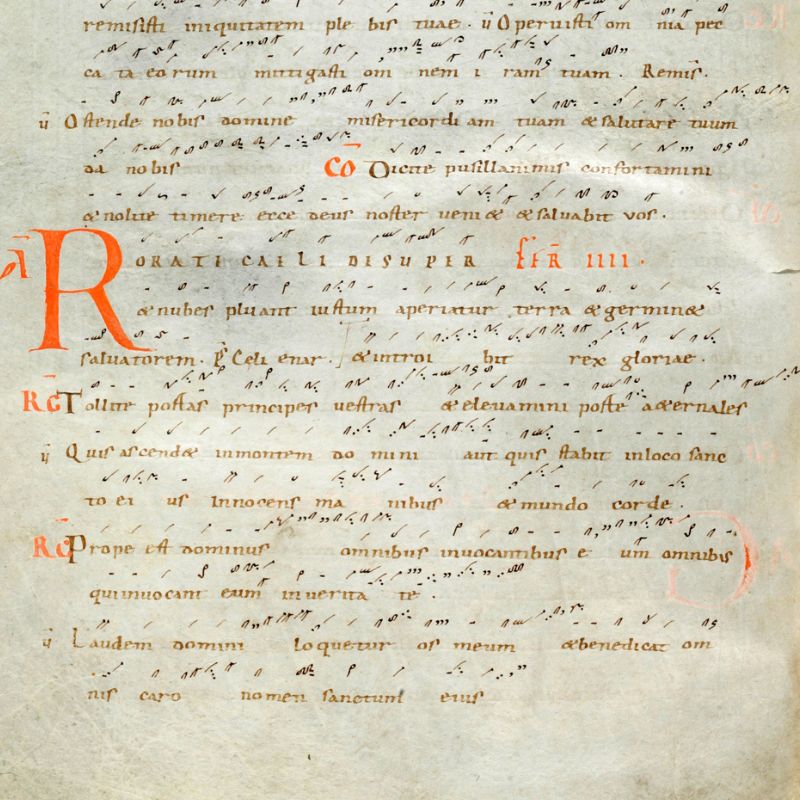 remisisti iniquitatem ple bis tuae. ṽ Operuisti om nia pec
ca ta eorum mittigasti om nem i ram tuam. Remis.
ṽ Ostende nobis domine misericordi am tuam & salutare tuum
da nobis CŌ Dicite pusillanimis confortamini
& nolite timere ecce deus noster veni & & salvabit vos.
Ā RORATE CAELI DESUPER FER IIII.
& nubes pluant iustum aperiatur terra & germin&
salvatorem. Ps Celi enar. & introi bit rex gloriae.
RG Tollite portas principes vestras & elevamini porte aeternales
ṽ Quis ascend& in montem do mini aut quis stabit in loco sanc
to ei us Innocens ma nibus & mundo corde.
RG Prope est dominus omnibus invocantibus e um omnibus
qui invocant eum in verita te.
ṽ Laudem domini loquetur os meum & benedicat om
nis caro nomen sanctum eius